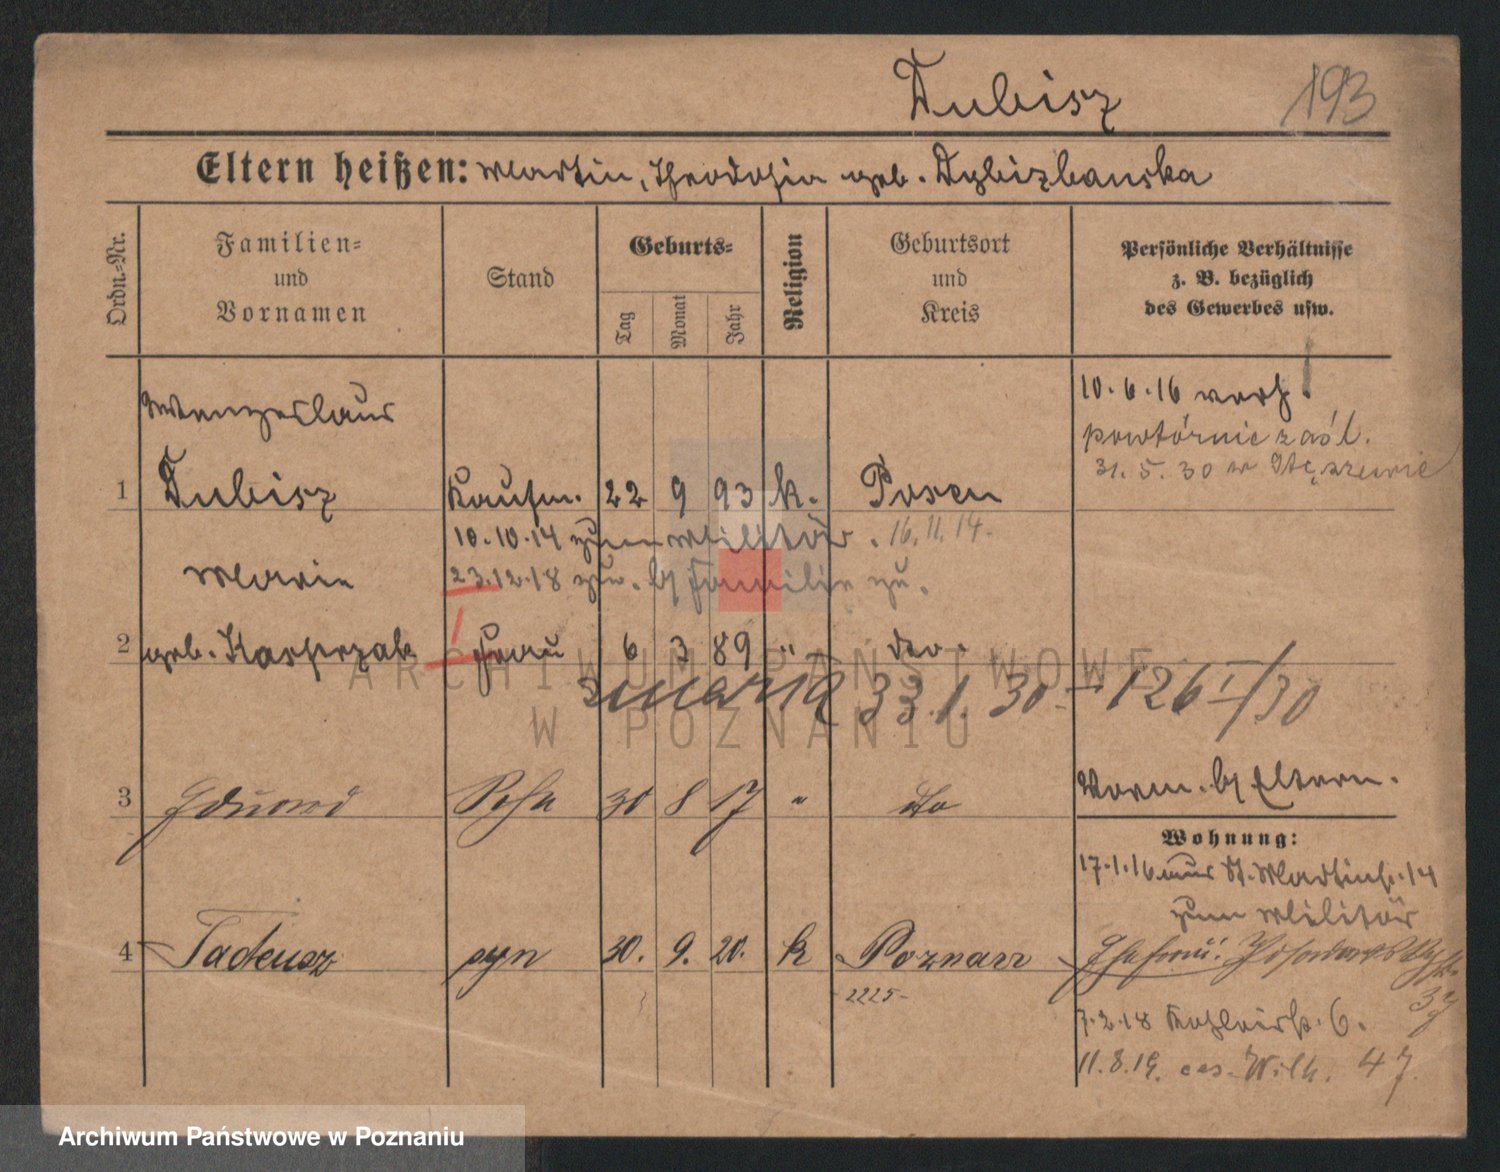 Dubisz 193
Eltern heißen: Martin, Theodosia geb. Dybizbanska
Ordn.-Nr.
Familien-
und
Vornamen
Stand
Geburts-
Tag
Monat
Jahr
Religion
Geburtsort
und
Kreis
Persönliche Verhältnisse
z. B. bezüglich
des Gewerbes usw.
Wenzeslaus
10.6.16 verh.
powtórnie zaśl.
31.5.30 w Stęszewie
1 Dubisz Kaufm. 22 9 93 k. Posen
10.10.14 zum Militär. 16.11.14.
Marie
23.12.18 zur. b/ Familie zu.
2 geb. Kasprzak Frau 6 3 89 " do.
zmarła 33.1.30 – 126 I/30
3 Eduard Sohn 30 8 17 " do
Vorm. b/ Eltern.
Wohnung:
17.1.16 aus St. Martinstr. 14
zum Militär
4 Tadeusz syn 30. 9. 20. k Poznań
Ehefrau:
37
-2225-
7.2.18 6.
11.8.19. ces. Wilh. 47
ARCHIWUM PAŃSTWOWE
W POZNANIU
Archiwum Państwowe w Poznaniu